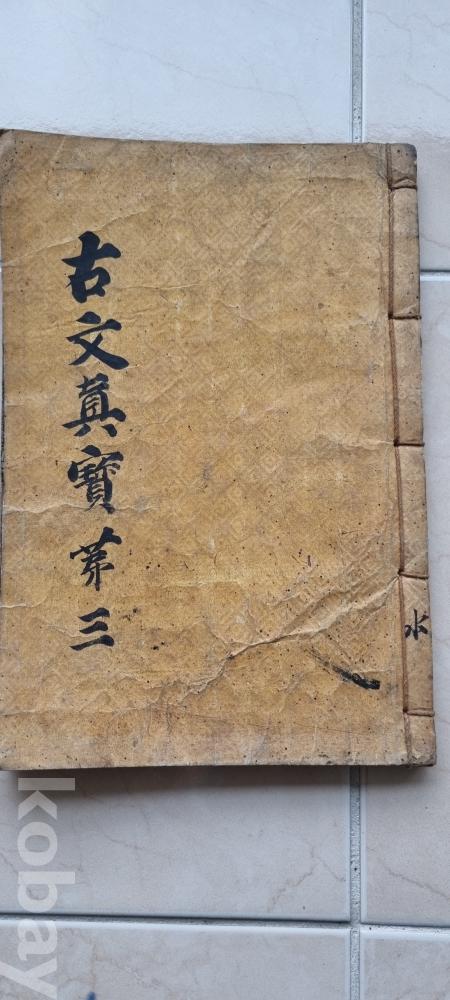 古文眞寶 第三
水
kobay